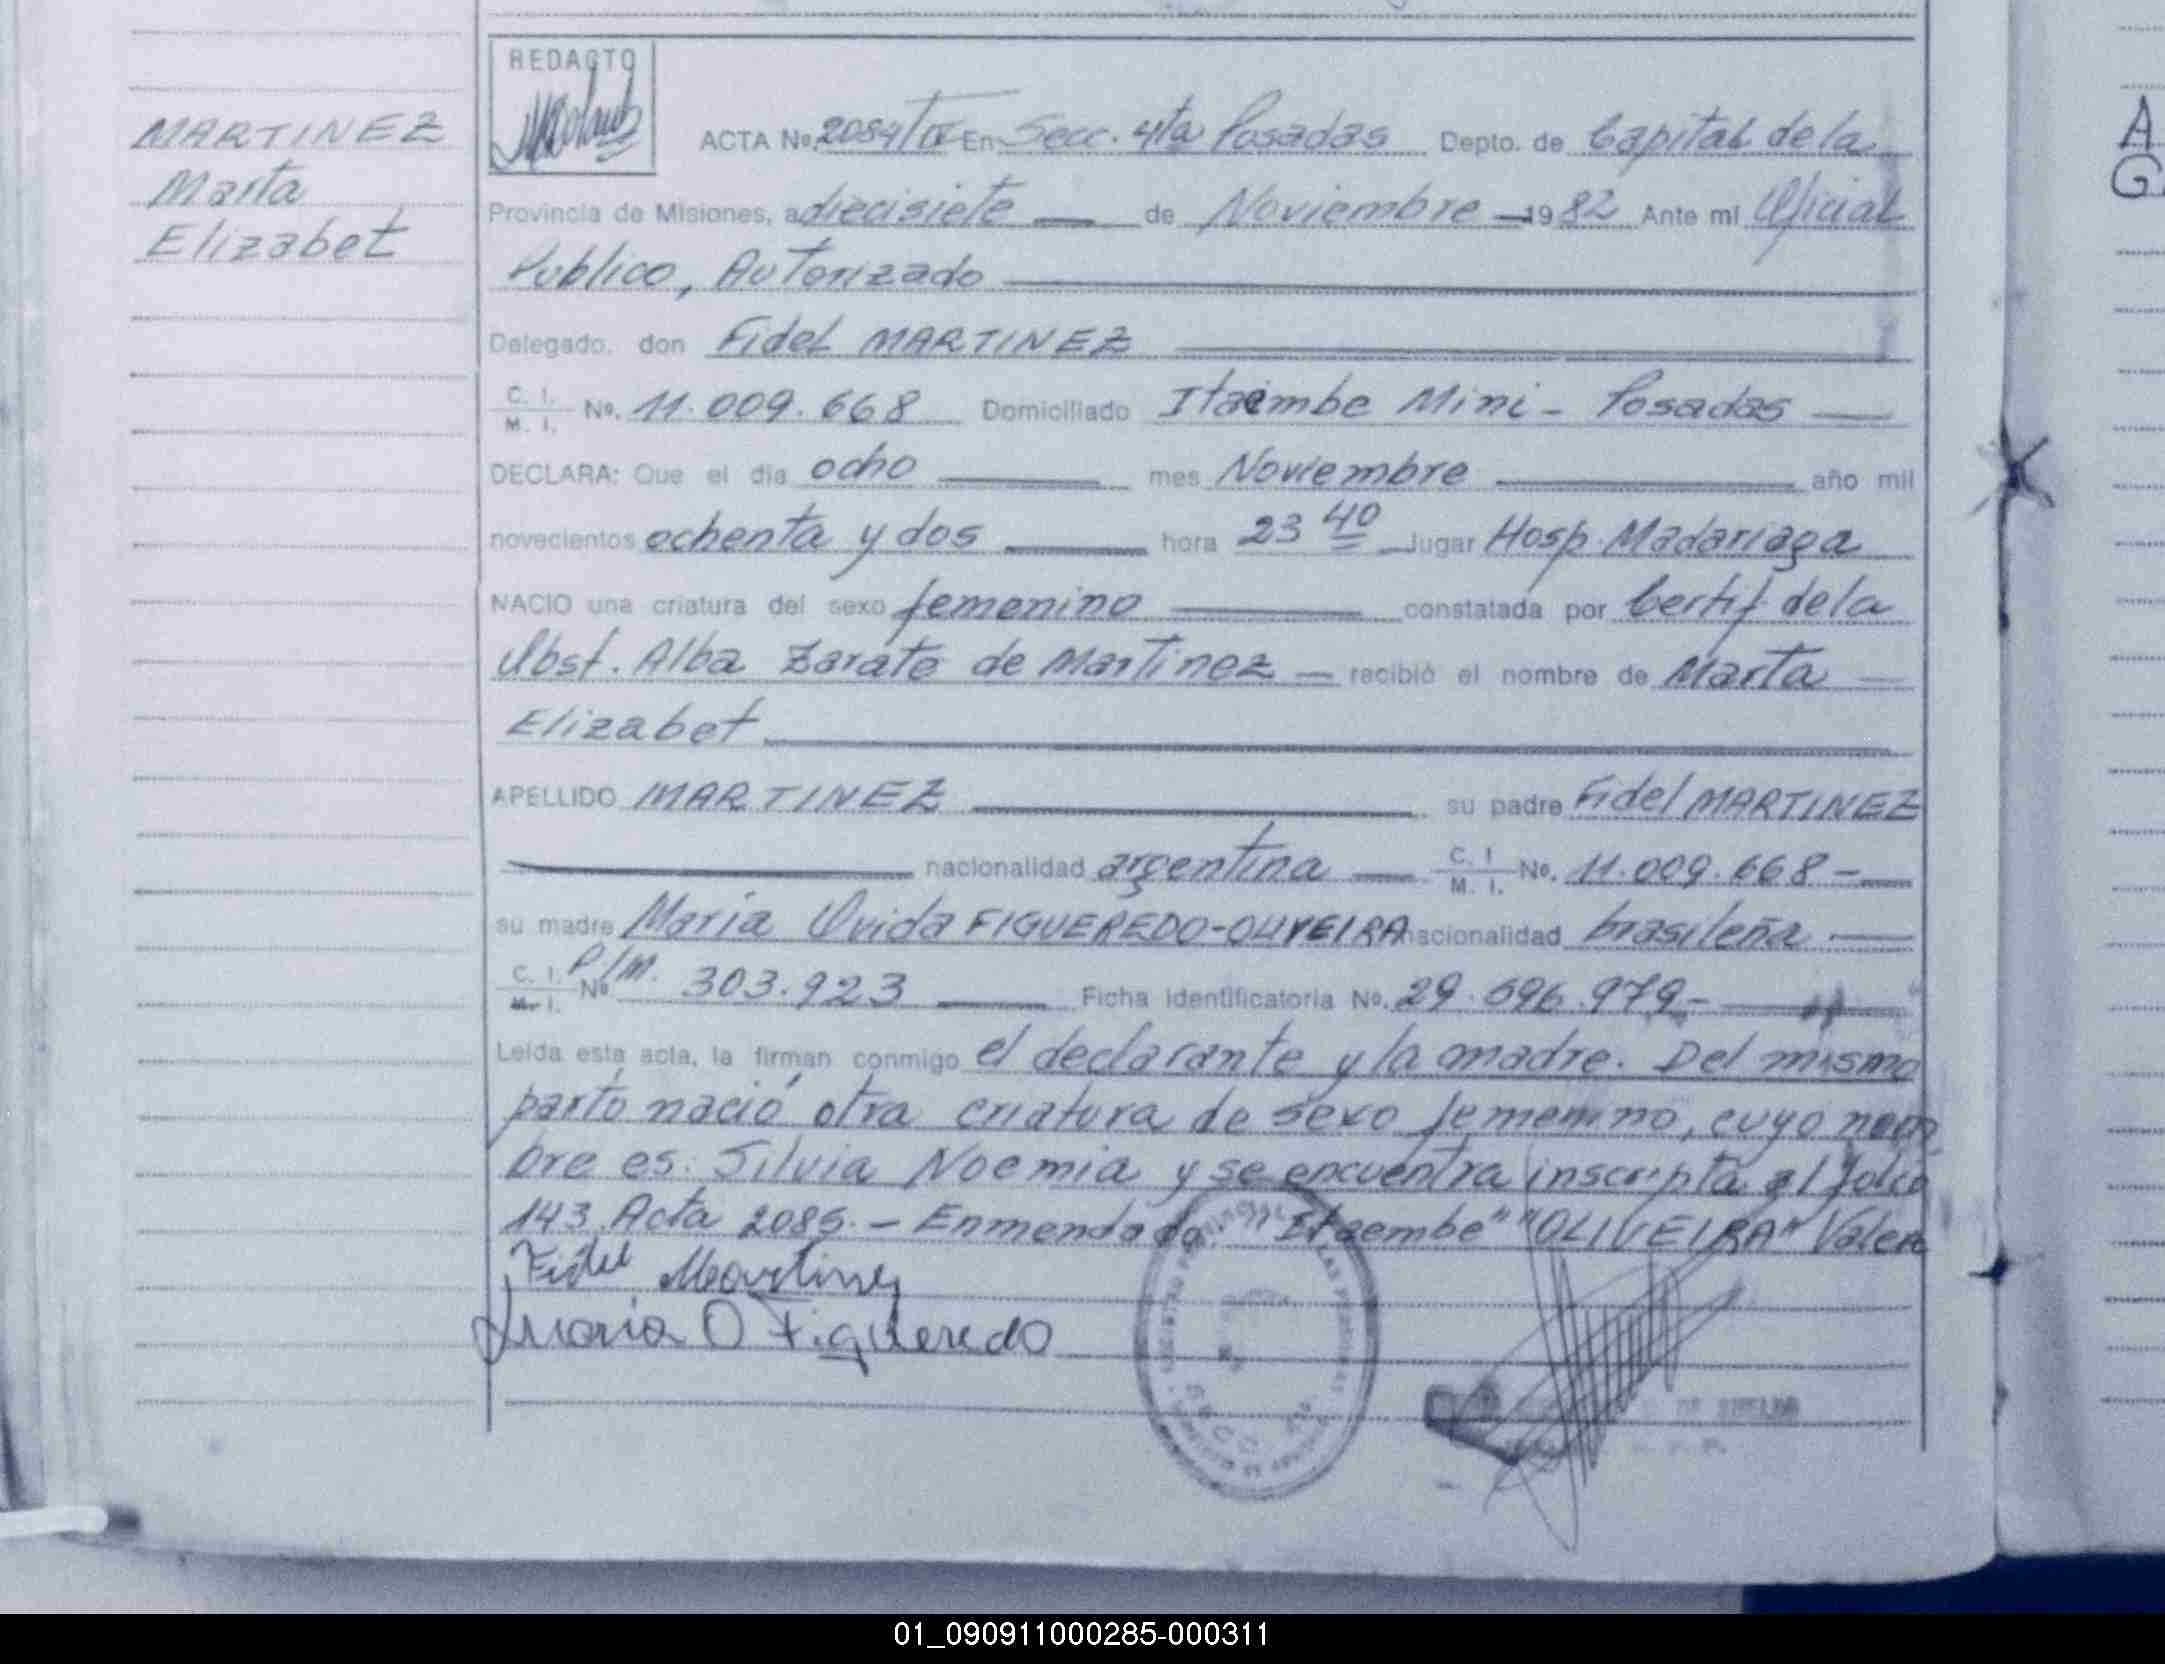 REDACTO
MARTINEZ
Marta
Elizabet
ACTA No. 2084/IV En Secc. 4ta Posadas Depto. de Capital de la
Provincia de Misiones, a diecisiete de Noviembre 1982 Ante mi Oficial
Publico, Autorizado
Delegado, don Fidel MARTINEZ
C. I. M. I. No. 11.009.668 Domiciliado Itaembe Mini - Posadas
DECLARA: Que el dia ocho mes Noviembre año mil
novecientos ochenta y dos hora 23 40 lugar Hosp. Madariaga
NACIO una criatura del sexo femenino constatada por Certif. de la
Obst. Alba Zarate de Martinez - recibió el nombre de Marta
Elizabet
APELLIDO MARTINEZ su padre Fidel MARTINEZ
nacionalidad argentina C. I M. I. No. 11.009.668 -
su madre Maria Ovida FIGUEREDO-OLIVEIRA nacionalidad brasileña
C. I. M. I. No P/M. 303.923 Ficha Identificatoria No. 29.696.979-
Leida esta acta, la firman conmigo el declarante y la madre. Del mismo
parto nació otra criatura de sexo femenino, cuyo nom
bre es: Silvia Noemia y se encuentra inscripta al folio
143 Acta 2085. - Enmendado: "Itaembe" "OLIVEIRA" Valen
Fidel Martinez
Maria O Figueredo
A
G
01_090911000285-000311